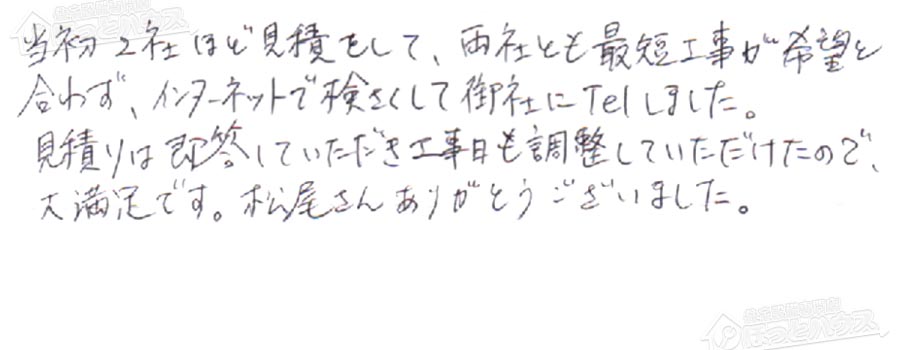 当初2社ほど見積をして、両社とも最短工事が希望と
合わず、インターネットで検さくして御社にTelしました。
見積りは即答していただき工事日も調整していただけたので、
大満足です。松尾さんありがとうございました。
ほっとハウス